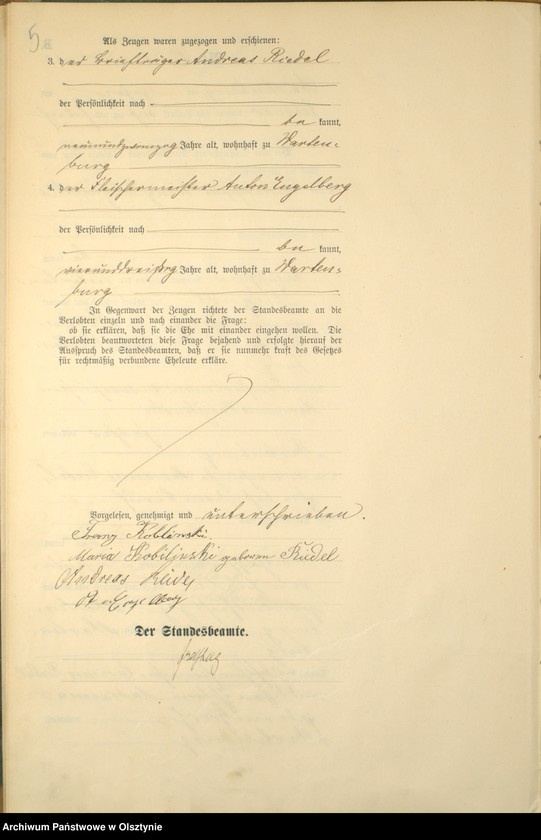 5
Als Zeugen waren zugezogen und erschienen:
3. der Briefträger Andreas Riedel
der Persönlichkeit nach
be kannt,
neunundzwanzig Jahre alt, wohnhaft zu Warten=
burg
4. der Fleischermeister Anton Engelberg
der Persönlichkeit nach
be kannt,
vierunddreißig Jahre alt, wohnhaft zu Warten=
burg
In Gegenwart der Zeugen richtete der Standesbeamte an die
Verlobten einzeln und nach einander die Frage:
ob sie erklären, daß sie die Ehe mit einander eingehen wollen. Die
Verlobten beantworteten diese Frage bejahend und erfolgte hierauf der
Ausspruch des Standesbeamten, daß er sie nunmehr kraft des Gesetzes
für rechtmäßig verbundene Eheleute erkläre.
Vorgelesen, genehmigt und unterschrieben.
Franz Koblinski.
Maria Kobilinski geboren Riedel
Andreas Riedel
Der Standesbeamte.
Archiwum Państwowe w Olsztynie